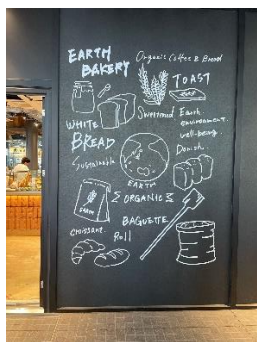 EARTH
BAKERY
Organic Coffee & Bread
TOAST
WHITE
BREAD
Sweetened
Earth
environment.
well-being.
Sustainable
Danish
EARTH
ORGANIC
BAGUETTE
Roll
Croissant.